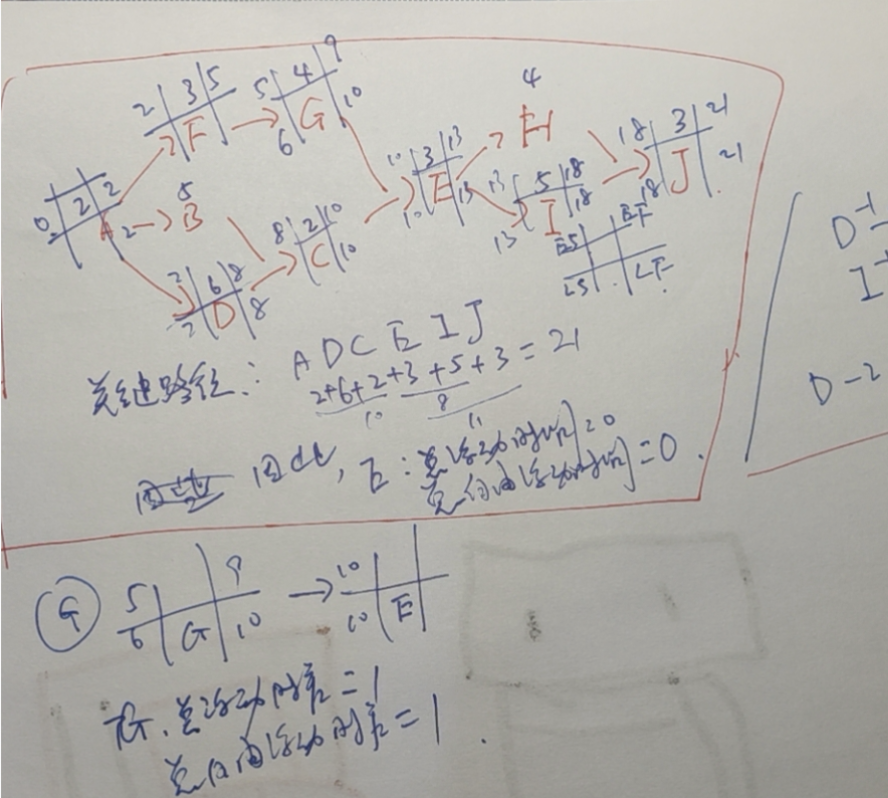 2 3 5
F
5 4 9
6 G 10
4
H
0 2 2
A 2
5
B
8 2 10
C 10
10 3 13
10 E 13
13 5 18
13 I 18
18 3 21
18 J 21
2 6 8
2 D 8
ES EF
LS LF
关键路径: A D C E I J
2+6+2+3+5+3=21
10 8
11
因此, E: 总浮动时间=0
自由浮动时间=0.
D-1
I-1
D-2
G 5 9
6 G 10
10
10 E
G. 总浮动时差=1
自由浮动时差=1.